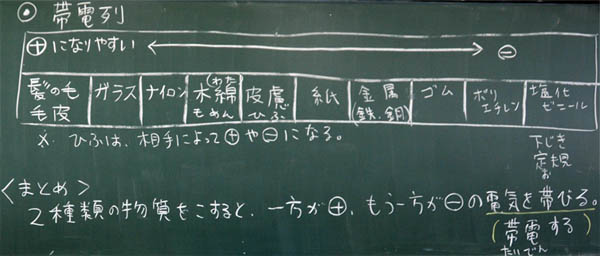 ◎ 帯電列
⊕になりやすい ←→ ⊖
髪の毛 毛皮 ガラス ナイロン 木綿(わた) もめん 皮膚 ひふ 紙 金属(鉄、銅) ゴム ポリエチレン 塩化ビニール
※ ひふは、相手によって⊕や⊖になる。
下じき
定規
<まとめ>
2種類の物質をこすると、一方が⊕、もう一方が⊖の電気を帯びる。
お
(帯電する)
たいでん